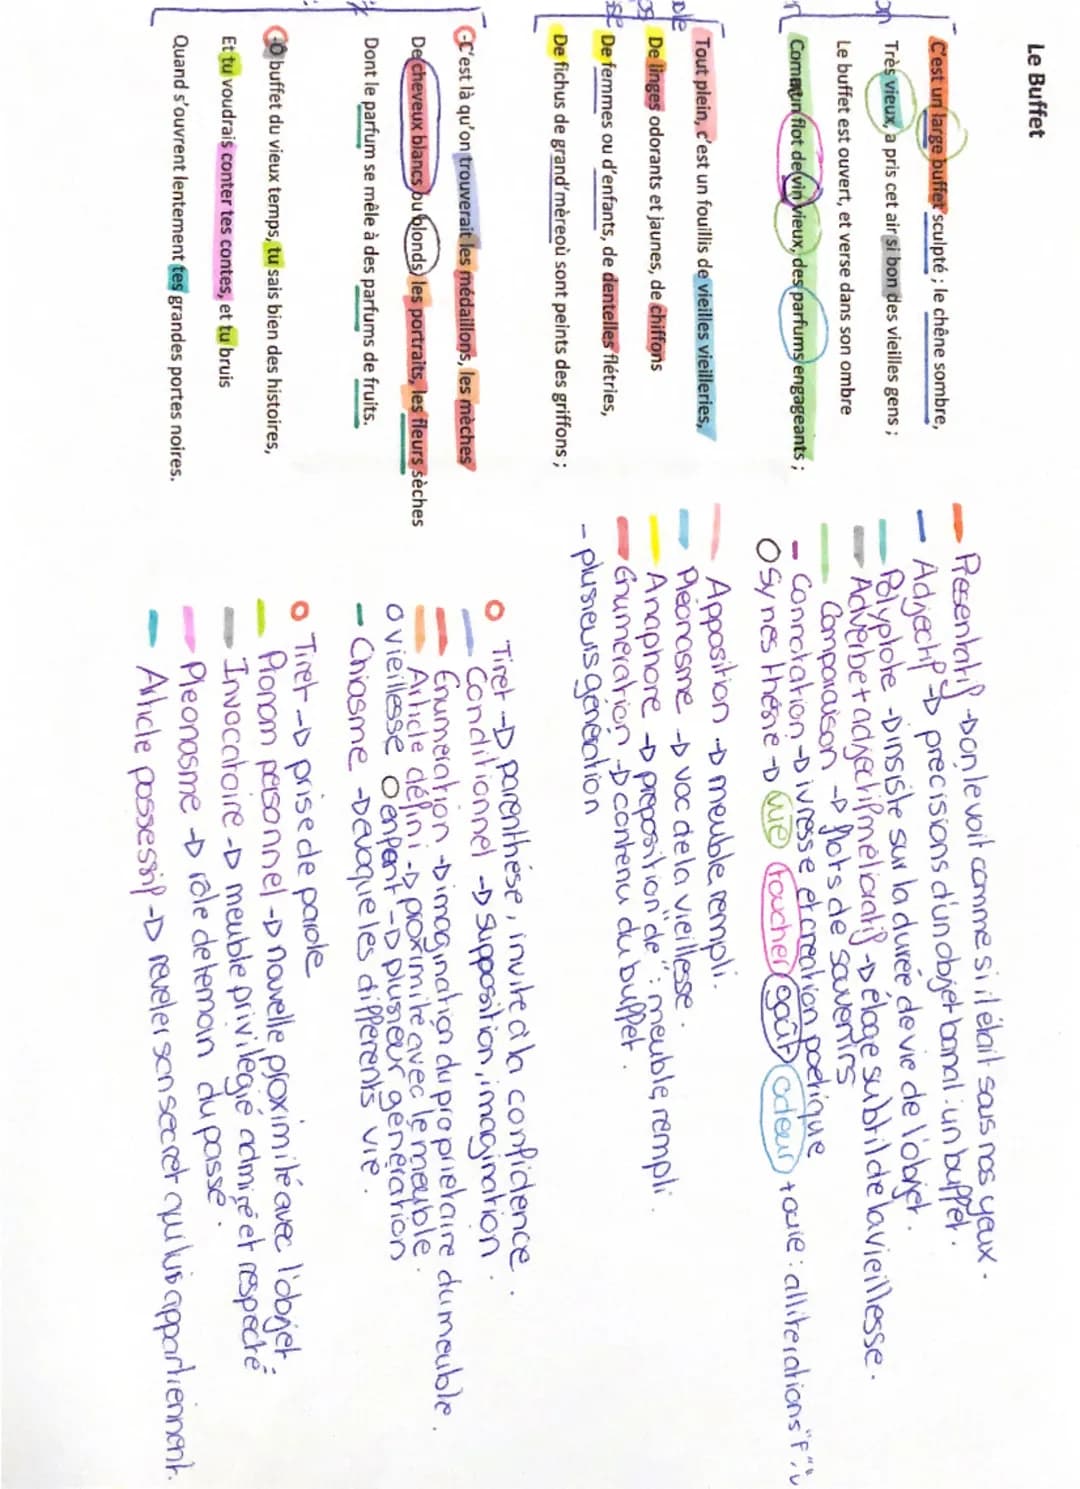 Le Buffet
C'est un large buffet sculpté ; le chêne sombre,
Très vieux, a pris cet air si bon des vieilles gens ;
Le buffet est ouvert, et verse dans son ombre
Comme un flot de vin vieux, des parfums engageants ;
Tout plein, c'est un fouillis de vieilles vieilleries,
De linges odorants et jaunes, de chiffons
De femmes ou d'enfants, de dentelles flétries,
De fichus de grand'mère où sont peints des griffons ;
-C'est là qu'on trouverait les médaillons, les mèches
De cheveux blancs ou blonds, les portraits, les fleurs sèches
Dont le parfum se mêle à des parfums de fruits.
-Ô buffet du vieux temps, tu sais bien des histoires,
Et tu voudrais conter tes contes, et tu bruis
Quand s'ouvrent lentement tes grandes portes noires.
Présentatif → on le voit comme si il était sous nos yeux.
Adjectif → précisions d'un objet banal : un buffet.
Polyptote → insiste sur la durée de vie de l'objet.
Adverbe + adjectif mélioratif → éloge subtil de la vieillesse.
Comparaison → flots de souvenirs
Connotation → ivresse et création poétique
Synesthésie → vue toucher goût odeur + ouïe : allitérations "F", "v
Apposition → meuble rempli.
Pléonasme → voc de la vieillesse.
Anaphore → préposition "de" : meuble rempli.
Énumération → contenu du buffet.
- plusieurs génération
Tiret → parenthèse, invite à la confidence.
Conditionnel → supposition, imagination.
Énumération → imagination du propriétaire du meuble.
Article défini → proximité avec le meuble.
O vieillesse O enfant → plusieur génération
Chiasme → évoque les différents vie.
Tiret → prise de parole
Pronom personnel → nouvelle proximité avec l'objet
Invocatoire → meuble privilégié admiré et respecté
Pleonasme → rôle de témoin du passé.
Article possessif → révéler son secret qui lui appartiennent.